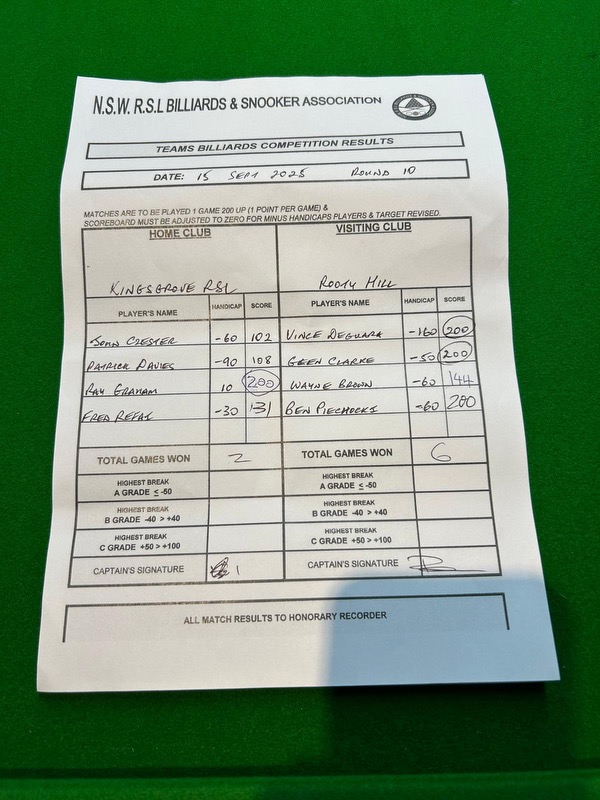 N.S.W. R.S.L BILLIARDS & SNOOKER ASSOCIATION
TEAMS BILLIARDS COMPETITION RESULTS
DATE: 15 SEPT 2025 ROUND 10
MATCHES ARE TO BE PLAYED 1 GAME 200 UP (1 POINT PER GAME) &
SCOREBOARD MUST BE ADJUSTED TO ZERO FOR MINUS HANDICAPS PLAYERS & TARGET REVISED.
HOME CLUB VISITING CLUB
KINGSGROVE RSL ROOTY HILL
PLAYER'S NAME HANDICAP SCORE PLAYER'S NAME HANDICAP SCORE
JOHN CHESTER -60 102 VINCE DEGUARA -160 200
PATRICK DAVIES -90 108 GREN CLARKE -50 200
RAY GRAHAM 10 200 WAYNE BROWN -60 144
FRED REFAI -30 131 BEN PIECHOCKI -60 200
TOTAL GAMES WON 2 TOTAL GAMES WON 6
HIGHEST BREAK HIGHEST BREAK
A GRADE ≤ -50 A GRADE ≤ -50
HIGHEST BREAK HIGHEST BREAK
B GRADE -40 > +40 B GRADE -40 > +40
HIGHEST BREAK HIGHEST BREAK
C GRADE +50 > +100 C GRADE +50 > +100
CAPTAIN'S SIGNATURE CAPTAIN'S SIGNATURE
ALL MATCH RESULTS TO HONORARY RECORDER